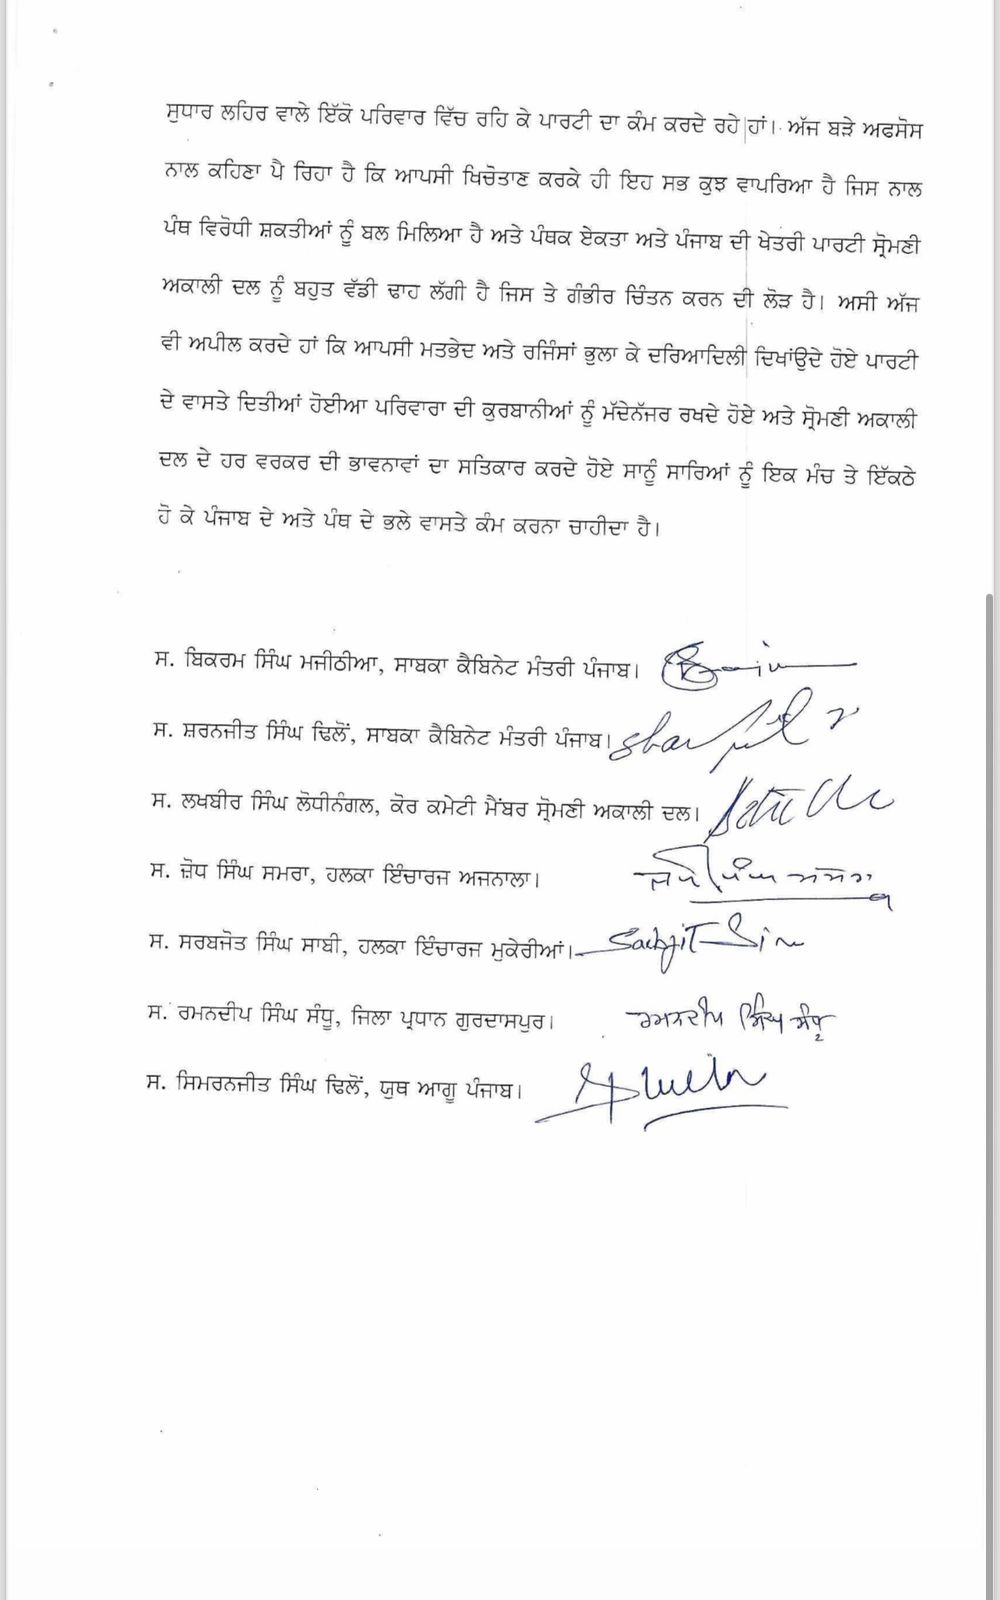 ਸੁਧਾਰ ਲਹਿਰ ਵਾਲੇ ਇੱਕੋ ਪਰਿਵਾਰ ਵਿੱਚ ਰਹਿ ਕੇ ਪਾਰਟੀ ਦਾ ਕੰਮ ਕਰਦੇ ਰਹੇ ਹਾਂ। ਅੱਜ ਬੜੇ ਅਫਸੋਸ
ਨਾਲ ਕਹਿਣਾ ਪੈ ਰਿਹਾ ਹੈ ਕਿ ਆਪਸੀ ਖਿਚੋਤਾਣ ਕਰਕੇ ਹੀ ਇਹ ਸਭ ਕੁਝ ਵਾਪਰਿਆ ਹੈ ਜਿਸ ਨਾਲ
ਪੰਥ ਵਿਰੋਧੀ ਸ਼ਕਤੀਆਂ ਨੂੰ ਬਲ ਮਿਲਿਆ ਹੈ ਅਤੇ ਪੰਥਕ ਏਕਤਾ ਅਤੇ ਪੰਜਾਬ ਦੀ ਖੇਤਰੀ ਪਾਰਟੀ ਸ਼੍ਰੋਮਣੀ
ਅਕਾਲੀ ਦਲ ਨੂੰ ਬਹੁਤ ਵੱਡੀ ਢਾਹ ਲੱਗੀ ਹੈ ਜਿਸ ਤੇ ਗੰਭੀਰ ਚਿੰਤਨ ਕਰਨ ਦੀ ਲੋੜ ਹੈ। ਅਸੀ ਅੱਜ
ਵੀ ਅਪੀਲ ਕਰਦੇ ਹਾਂ ਕਿ ਆਪਸੀ ਮਤਭੇਦ ਅਤੇ ਰਜਿੰਸਾਂ ਭੁਲਾ ਕੇ ਦਰਿਆਦਿਲੀ ਦਿਖਾਂਉਦੇ ਹੋਏ ਪਾਰਟੀ
ਦੇ ਵਾਸਤੇ ਦਿਤੀਆਂ ਹੋਈਆ ਪਰਿਵਾਰਾ ਦੀ ਕੁਰਬਾਨੀਆਂ ਨੂੰ ਮੱਦੇਨੱਜਰ ਰਖਦੇ ਹੋਏ ਅਤੇ ਸ਼੍ਰੋਮਣੀ ਅਕਾਲੀ
ਦਲ ਦੇ ਹਰ ਵਰਕਰ ਦੀ ਭਾਵਨਾਵਾਂ ਦਾ ਸਤਿਕਾਰ ਕਰਦੇ ਹੋਏ ਸਾਨੂੰ ਸਾਰਿਆਂ ਨੂੰ ਇਕ ਮੰਚ ਤੇ ਇੱਕਠੇ
ਹੋ ਕੇ ਪੰਜਾਬ ਦੇ ਅਤੇ ਪੰਥ ਦੇ ਭਲੇ ਵਾਸਤੇ ਕੰਮ ਕਰਨਾ ਚਾਹੀਦਾ ਹੈ।
ਸ. ਬਿਕਰਮ ਸਿੰਘ ਮਜੀਠੀਆ, ਸਾਬਕਾ ਕੈਬਿਨੇਟ ਮੰਤਰੀ ਪੰਜਾਬ।
ਸ. ਸ਼ਰਨਜੀਤ ਸਿੰਘ ਢਿਲੋਂ, ਸਾਬਕਾ ਕੈਬਿਨੇਟ ਮੰਤਰੀ ਪੰਜਾਬ।
ਸ. ਲਖਬੀਰ ਸਿੰਘ ਲੋਧੀਨੰਗਲ, ਕੋਰ ਕਮੇਟੀ ਮੈਂਬਰ ਸ਼੍ਰੋਮਣੀ ਅਕਾਲੀ ਦਲ।
ਸ. ਜ਼ੋਧ ਸਿੰਘ ਸਮਰਾ, ਹਲਕਾ ਇੰਚਾਰਜ ਅਜਨਾਲਾ।
ਸ. ਸਰਬਜੋਤ ਸਿੰਘ ਸਾਬੀ, ਹਲਕਾ ਇੰਚਾਰਜ ਮੁਕੇਰੀਆਂ।
ਸ. ਰਮਨਦੀਪ ਸਿੰਘ ਸੰਧੂ, ਜਿਲਾ ਪ੍ਰਧਾਨ ਗੁਰਦਾਸਪੁਰ। ਰਮਨਦੀਪ ਸਿੰਘ ਸੰਧੂ
ਸ. ਸਿਮਰਨਜੀਤ ਸਿੰਘ ਢਿਲੋਂ, ਯੁਥ ਆਗੂ ਪੰਜਾਬ।